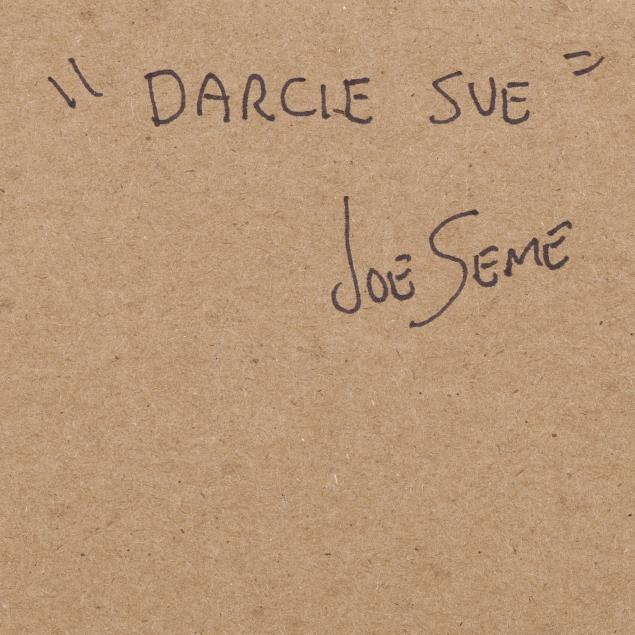 "DARCIE SUE"
JOE SEME